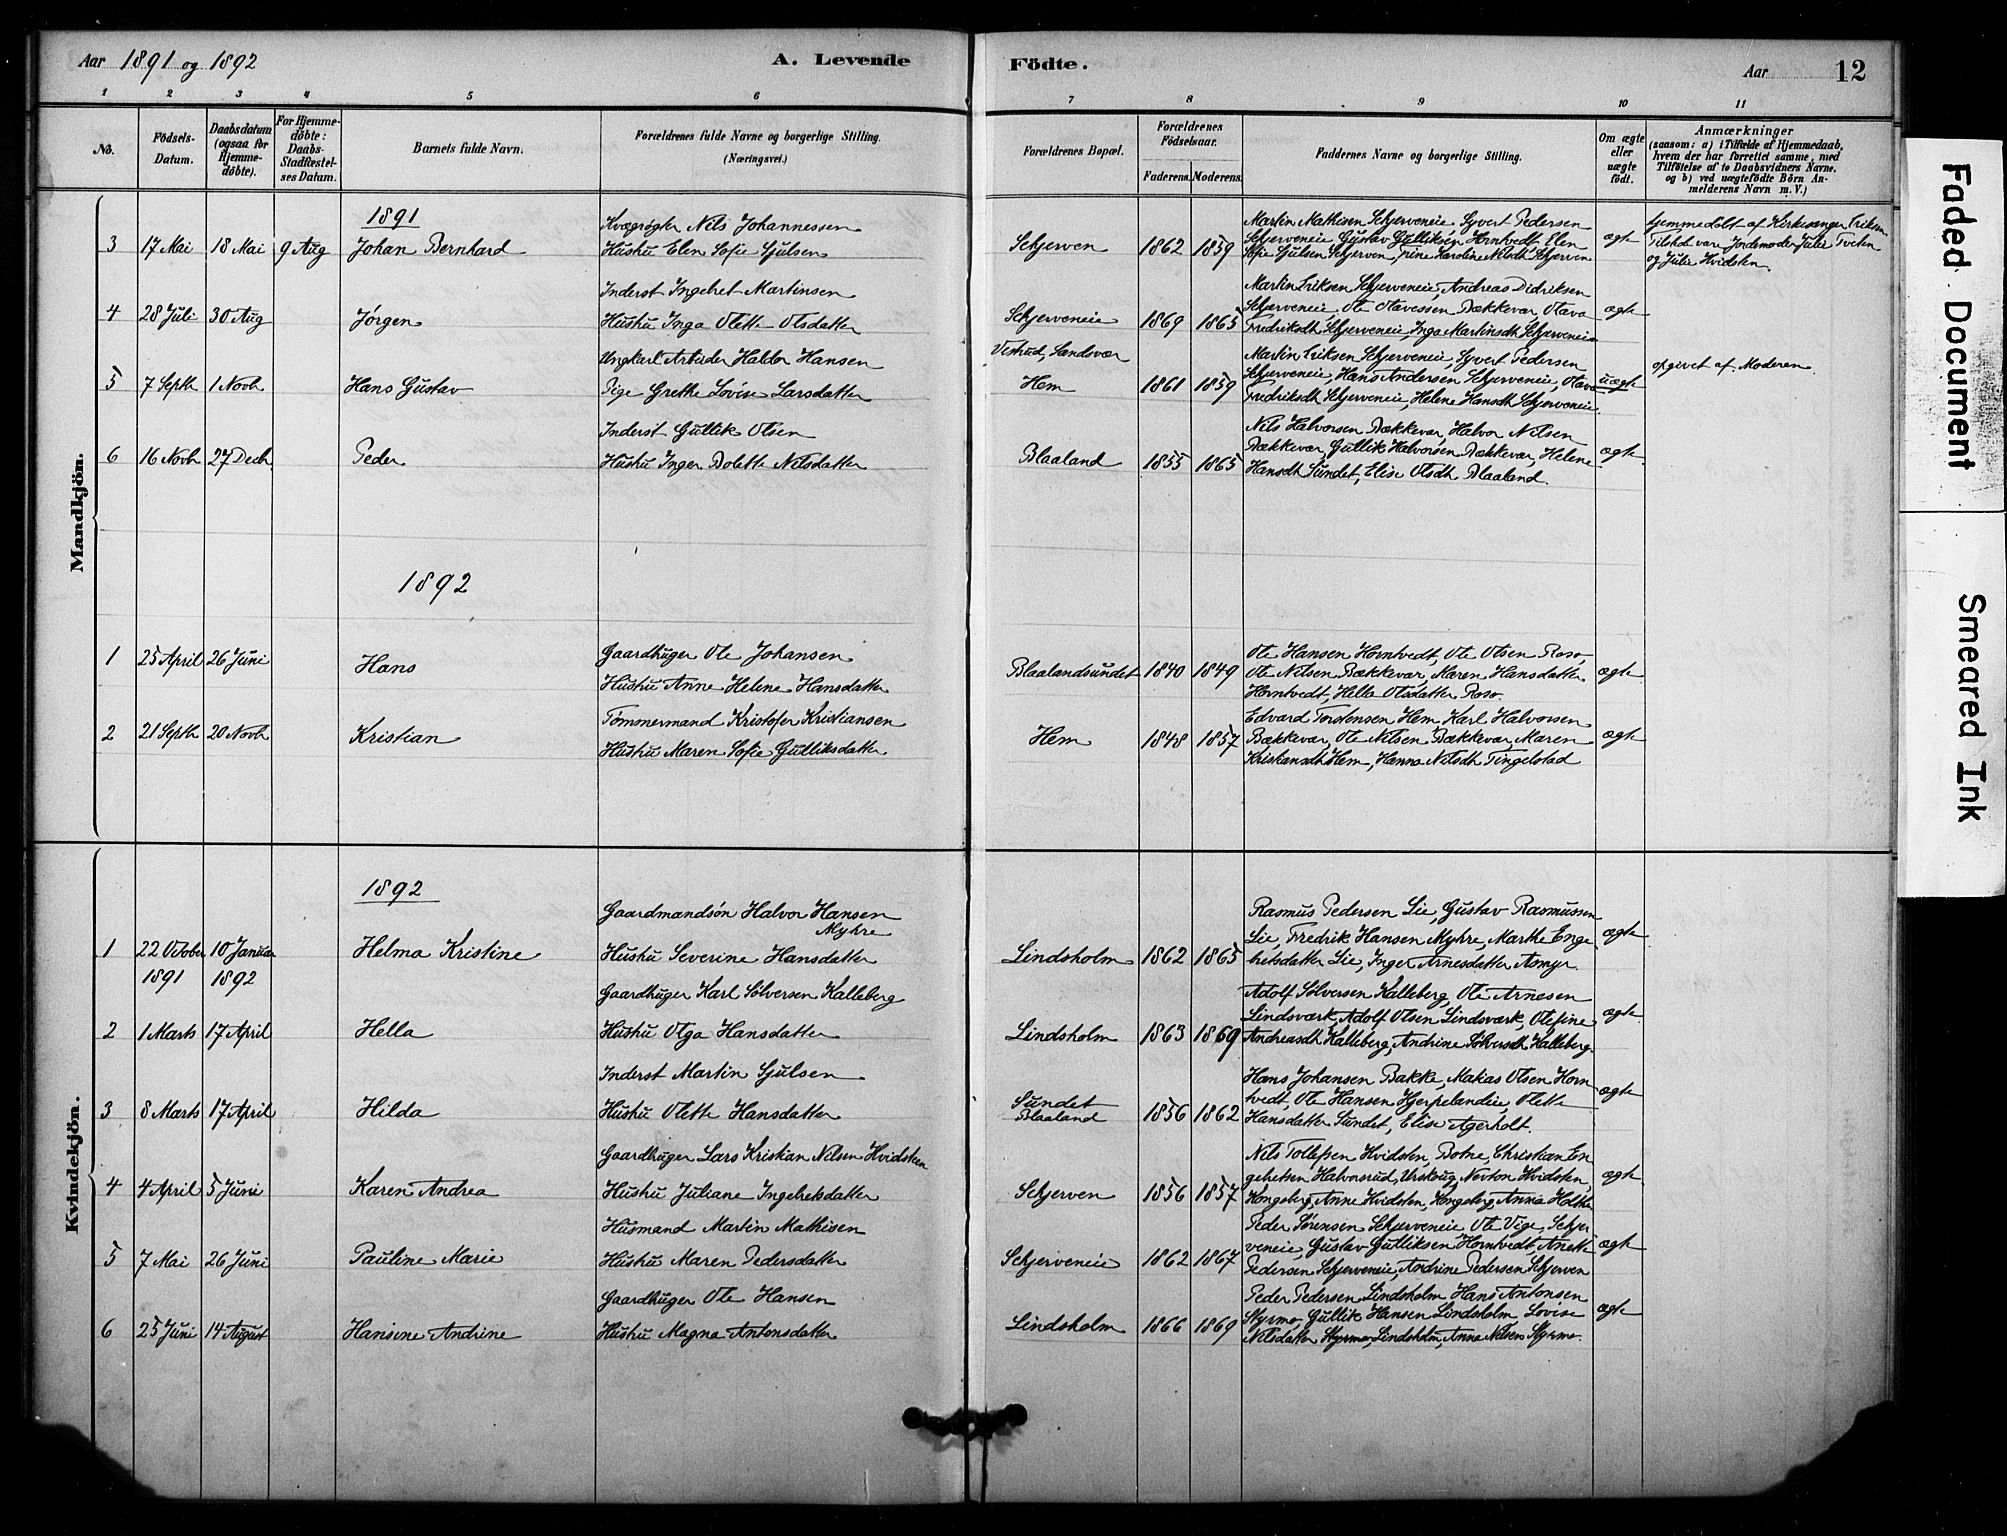 Aar 1891 og 1892
A. Levende Födte.
Aar 12
1 2 3 4 5 6 7 8 9 10 11
No.
Födsels-Datum.
Daabsdatum (ogsaa for Hjemme-döbte).
For Hjemme-döbte: Daabs-Stadfæstel-ses Datum.
Barnets fulde Navn.
Forældrenes fulde Navne og borgerlige Stilling. (Næringsvei.)
Forældrenes Bopæl.
Forældrenes Födselsaar.
Faderens. Moderens.
Faddernes Navne og borgerlige Stilling.
Om ægte eller uægte födt.
Anmærkninger
(saasom: a) i Tilfælde af Hjemmedaab,
hvem der har forrettet samme, med
Tilföielse af to Daabsvidners Navne,
og b) ved uægtefödte Börn An-
melderens Navn m. V.)
Mandkjön.
1891
3 17 Mai 18 Mai 9 Aug Johan Bernhard
Kvægrøgter Nils Johannessen
Hustru Elen Sofie Sjulsen
Schjerven 1862 1859
Martin Mathisen Schjerveneie, Syvert Pedersen
Schjerveneie Gustav Gulliksen Horntvedt Elen
Sofie Sjulsen Schjerven, Trine Karoline Nilsdtr Schjerven
ægte
hjemmedøbt af Kirkesanger Eriksen
Tilsted vare Jordemoder Julie Tveten
og Julie Hvidsten.
4 28 Juli 30 Aug Jørgen
Inderst Ingebret Martinsen
Hustru Inga Olette Olsdatter
Schjerveneie 1869 1865
Martin Eriksen Schjerveneie, Andreas Didriksen
Schjerveneie Ole Olavessen Bækkevar, Olava
Fredriksdtr Schjerveneie, Inga Martinsdtr Schjerveneie
ægte
5 7 Septb 1 Novb Hans Gustav
Ungkarl Arbeider Haldor Hansen
Pige Grethe Lovise Larsdatter
Vestrud, Sandsvær
Hem 1861 1859
Martin Eriksen Schjerveneie, Syvert Pedersen
Schjerveneie, Hans Andersen Schjerveneie, Olava
Fredriksdtr Schjerveneie, Helene Hansdtr Schjerveneie
uægte
opgivet af Moderen.
6 16 Novb 27 Decb. Peder
Inderst Gullik Olsen
Hustru Inger Bolette Nilsdatter
Blaaland 1855 1865
Nils Halvorsen Bækkevar, Halvor Nilsen
Bækkevar, Gullik Halvorsen Bækkevar, Helene
Hansdtr Sundet, Elise Olsdtr Blaaland.
ægte
1892
1 25 April 26 Juni Hans
Gaardbruger Ole Johansen
Hustru Anne Helene Hansdatter
Blaalandsundet 1840 1849
Ole Hansen Horntvedt, Ole Olsen Roso,
Ole Nilsen Bækkevar, Maren Hansdatter
Horntvedt, Helle Olsdatter Roso
ægte
2 21 Septb 20 Novb Kristian
Tømmermand Kristofer Kristiansen
Hustru Maren Sofie Gulliksdatter
Hem 1848 1857
Edvard Torstensen Hem Karl Halvorsen
Bækkevar, Ole Nilsen Bækkevar, Maren
Kristiansdtr Hem, Hanna Nilsdtr Tingelstad
ægte
Kvindekjön.
1892
1 22 October 10 Januar Helma Kristine
1891 1892
Gaardmandsøn Halvor Hansen
Myhre
Hustru Severine Hansdatter
Lindsholm 1862 1865
Rasmus Pedersen Lie, Gustav Rasmussen
Lie, Fredrik Hansen Myhre, Marthe Enge
bretsdatter Lie, Inger Arnesdatter Asmyr.
ægte
2 1 Marts 17 April Hella
Gaardbruger Karl Sølversen Kalleberg
Hustru Olga Hansdatter
Lindsholm 1863 1869
Adolf Sølversen Kalleberg, Ole Arnesen
Lindsværk, Adolf Olsen Lindsværk, Olefine
Andreasdtr Kalleberg, Andrine Sølversdtr Kalleberg.
ægte
3 8 Marts 17 April Hilda
Inderst Martin Sjulsen
Hustru Olette Hansdatter
Sundet
Blaaland 1856 1862
Hans Johansen Bakke, Matias Olsen Horn
tvedt, Ole Hansen Hjerpelandeie, Olette
Hansdatter Sundet, Elise Agerholt.
ægte
4 4 April 5 Juni Karen Andrea
Gaardbruger Lars Kristian Nilsen Hvidsteen
Hustru Juliane Ingebretsdatter
Schjerven 1856 1857
Nils Tollefsen Hvidsten, Botne, Christian En
gebretsen Halvorsrud, Urskoug, Nerton Hvidsten
Kongsberg, Anne Hvidsten, Kongsberg, Anna Holthe
ægte
5 7 Mai 26 Juni Pauline Marie
Husmand Martin Mathisen
Hustru Maren Pedersdatter
Schjerveneie 1862 1867
Peder Sørensen Schjerveneie Ole Vige, Schjer
veneie, Gustav Gulliksen Horntvedt, Anette
Pedersen Schjerveneie, Andrine Pedersen Schjerven
ægte
6 25 Juni 14 August Hansine Andrine
Gaardbruger Ole Hansen
Hustru Magna Antonsdatter
Lindsholm 1866 1869
Peder Pedersen Lindsholm Hans Antonsen
Styrmo, Gullik Hansen Lindsholm Lovise
Nilsdatter Styrmo, Lindsholm, Anna Nilsen Styrmo.
ægte
Faded Document
Smeared Ink